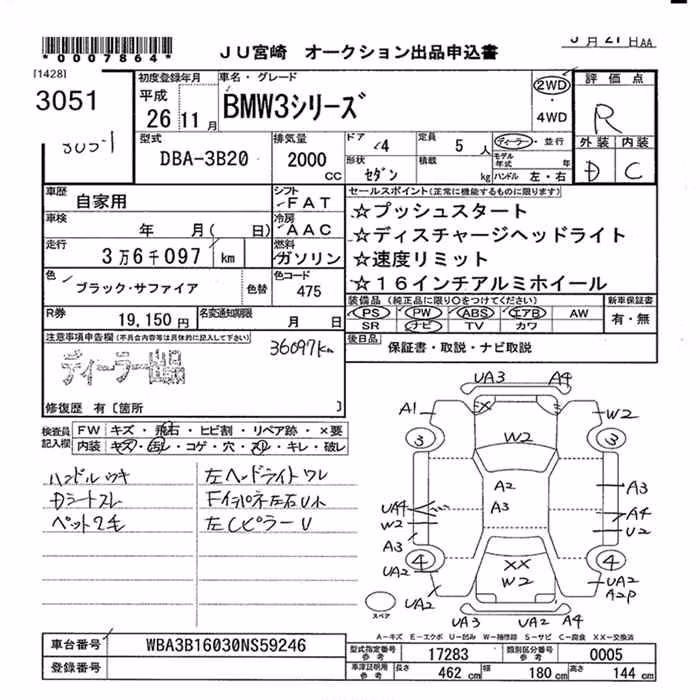 *0007864*
JU宮崎 オークション出品申込書
月21日AA
[1428]
3051
初度登録年月
平成
26 11月
車名・グレード
BMW3シリーズ
2WD
4WD
評価点
R
外装 内装
D C
型式
DBA-3B20
排気量
2000
CC
ドア
4
定員
5人
ディーラー・並行
モデル年式 年
形状
セダン
積載
kg
ハンドル 左・右
車歴
自家用
シフト
FAT
セールスポイント(正常に機能するものに限ります)
☆プッシュスタート
☆ディスチャージヘッドライト
☆速度リミット
☆16インチアルミホイール
車検
年 月( 日)
冷房
AAC
走行
3万6千097 km
燃料
ガソリン
色
ブラック・サファイア
色替
色コード
475
装備品(純正品に限り○をつけてください)
PS PW ABS エアB AW
SR ナビ TV カワ
新車保証書
有・無
R券
19,150円
名変通知期限
月 日
後日品
保証書・取説・ナビ取説
注意事項申告欄(不具合内容等は具体的に記入して下さい)
36097km
ディーラー
修復歴 有[箇所 ]
検査員
記入欄
FW キズ・飛石・ヒビ割・リペア跡・×要
内装 キズ・汚レ・コゲ・穴・スレ・キレ・破レ
ハンドルウキ
Dシートスレ
ペット2毛
左ヘッドライトワレ
Fインパネ左右U小
左CピラーU
UA3 A4
A1 W2
3 3
W2
A2
A3
A3
UA4
W2
A4
U2
A3
4 4
UA2
XX
W2
UA2
A2P
UA2
UA3 UA2 A4
スペア
A-キズ E-エクボ U-凹み W-補修跡 S-サビ C-腐食 XX-交換済
車台番号
WBA3B16030NS59246
登録番号
型式指定番号
参考
17283
類別区分番号
参考
0005
車庫証明用
参考
長さ
462 cm
幅
180 cm
高さ
144 cm